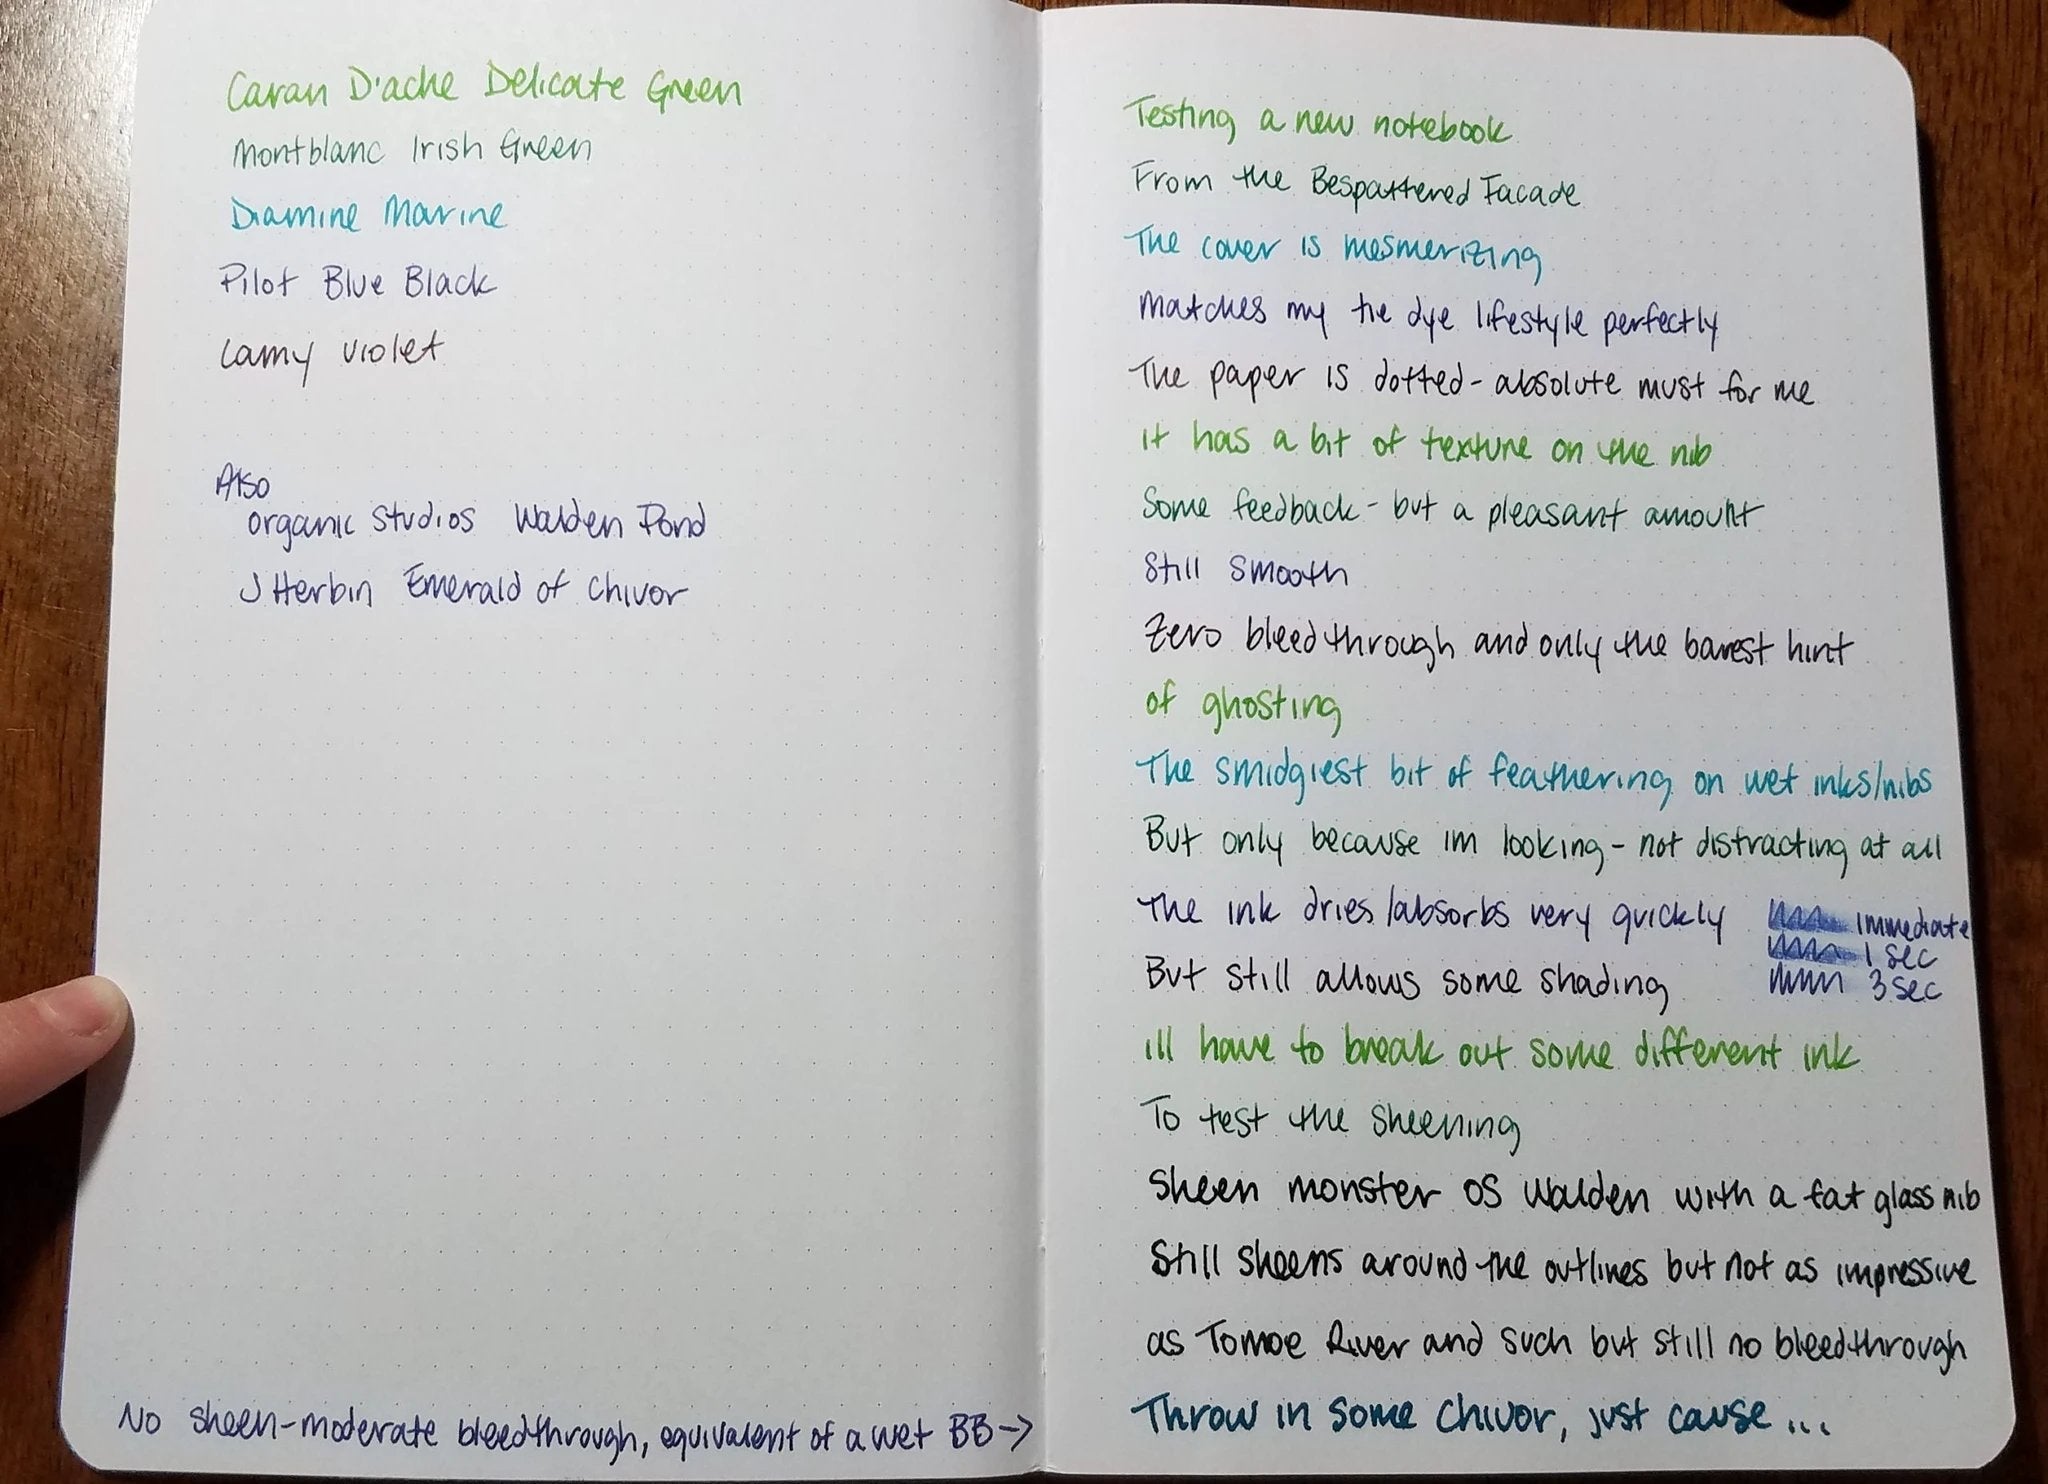 Caran D'ache Delicate Green
Montblanc Irish Green
Diamine Marine
Pilot Blue Black
Lamy Violet
Also
Organic Studios Walden Pond
J Herbin Emerald of Chivor
No sheen-moderate bleedthrough, equivalent of a wet BB →
Testing a new notebook
From the Bespattered Facade
The cover is mesmerizing
Matches my tie dye lifestyle perfectly
The paper is dotted - absolute must for me
it has a bit of texture on the nib
Some feedback - but a pleasant amount
Still smooth
Zero bleedthrough and only the barest hint
of ghosting
The smidgiest bit of feathering on wet inks/nibs
But only because im looking - not distracting at all
The ink dries/absorbs very quickly immediate
1 sec
But still allows some shading 3 sec
ill have to break out some different ink
To test the sheening
Sheen monster OS Walden with a fat glass nib
Still sheens around the outlines but not as impressive
as Tomoe River and such but still no bleedthrough
Throw in some Chivor, just cause ...